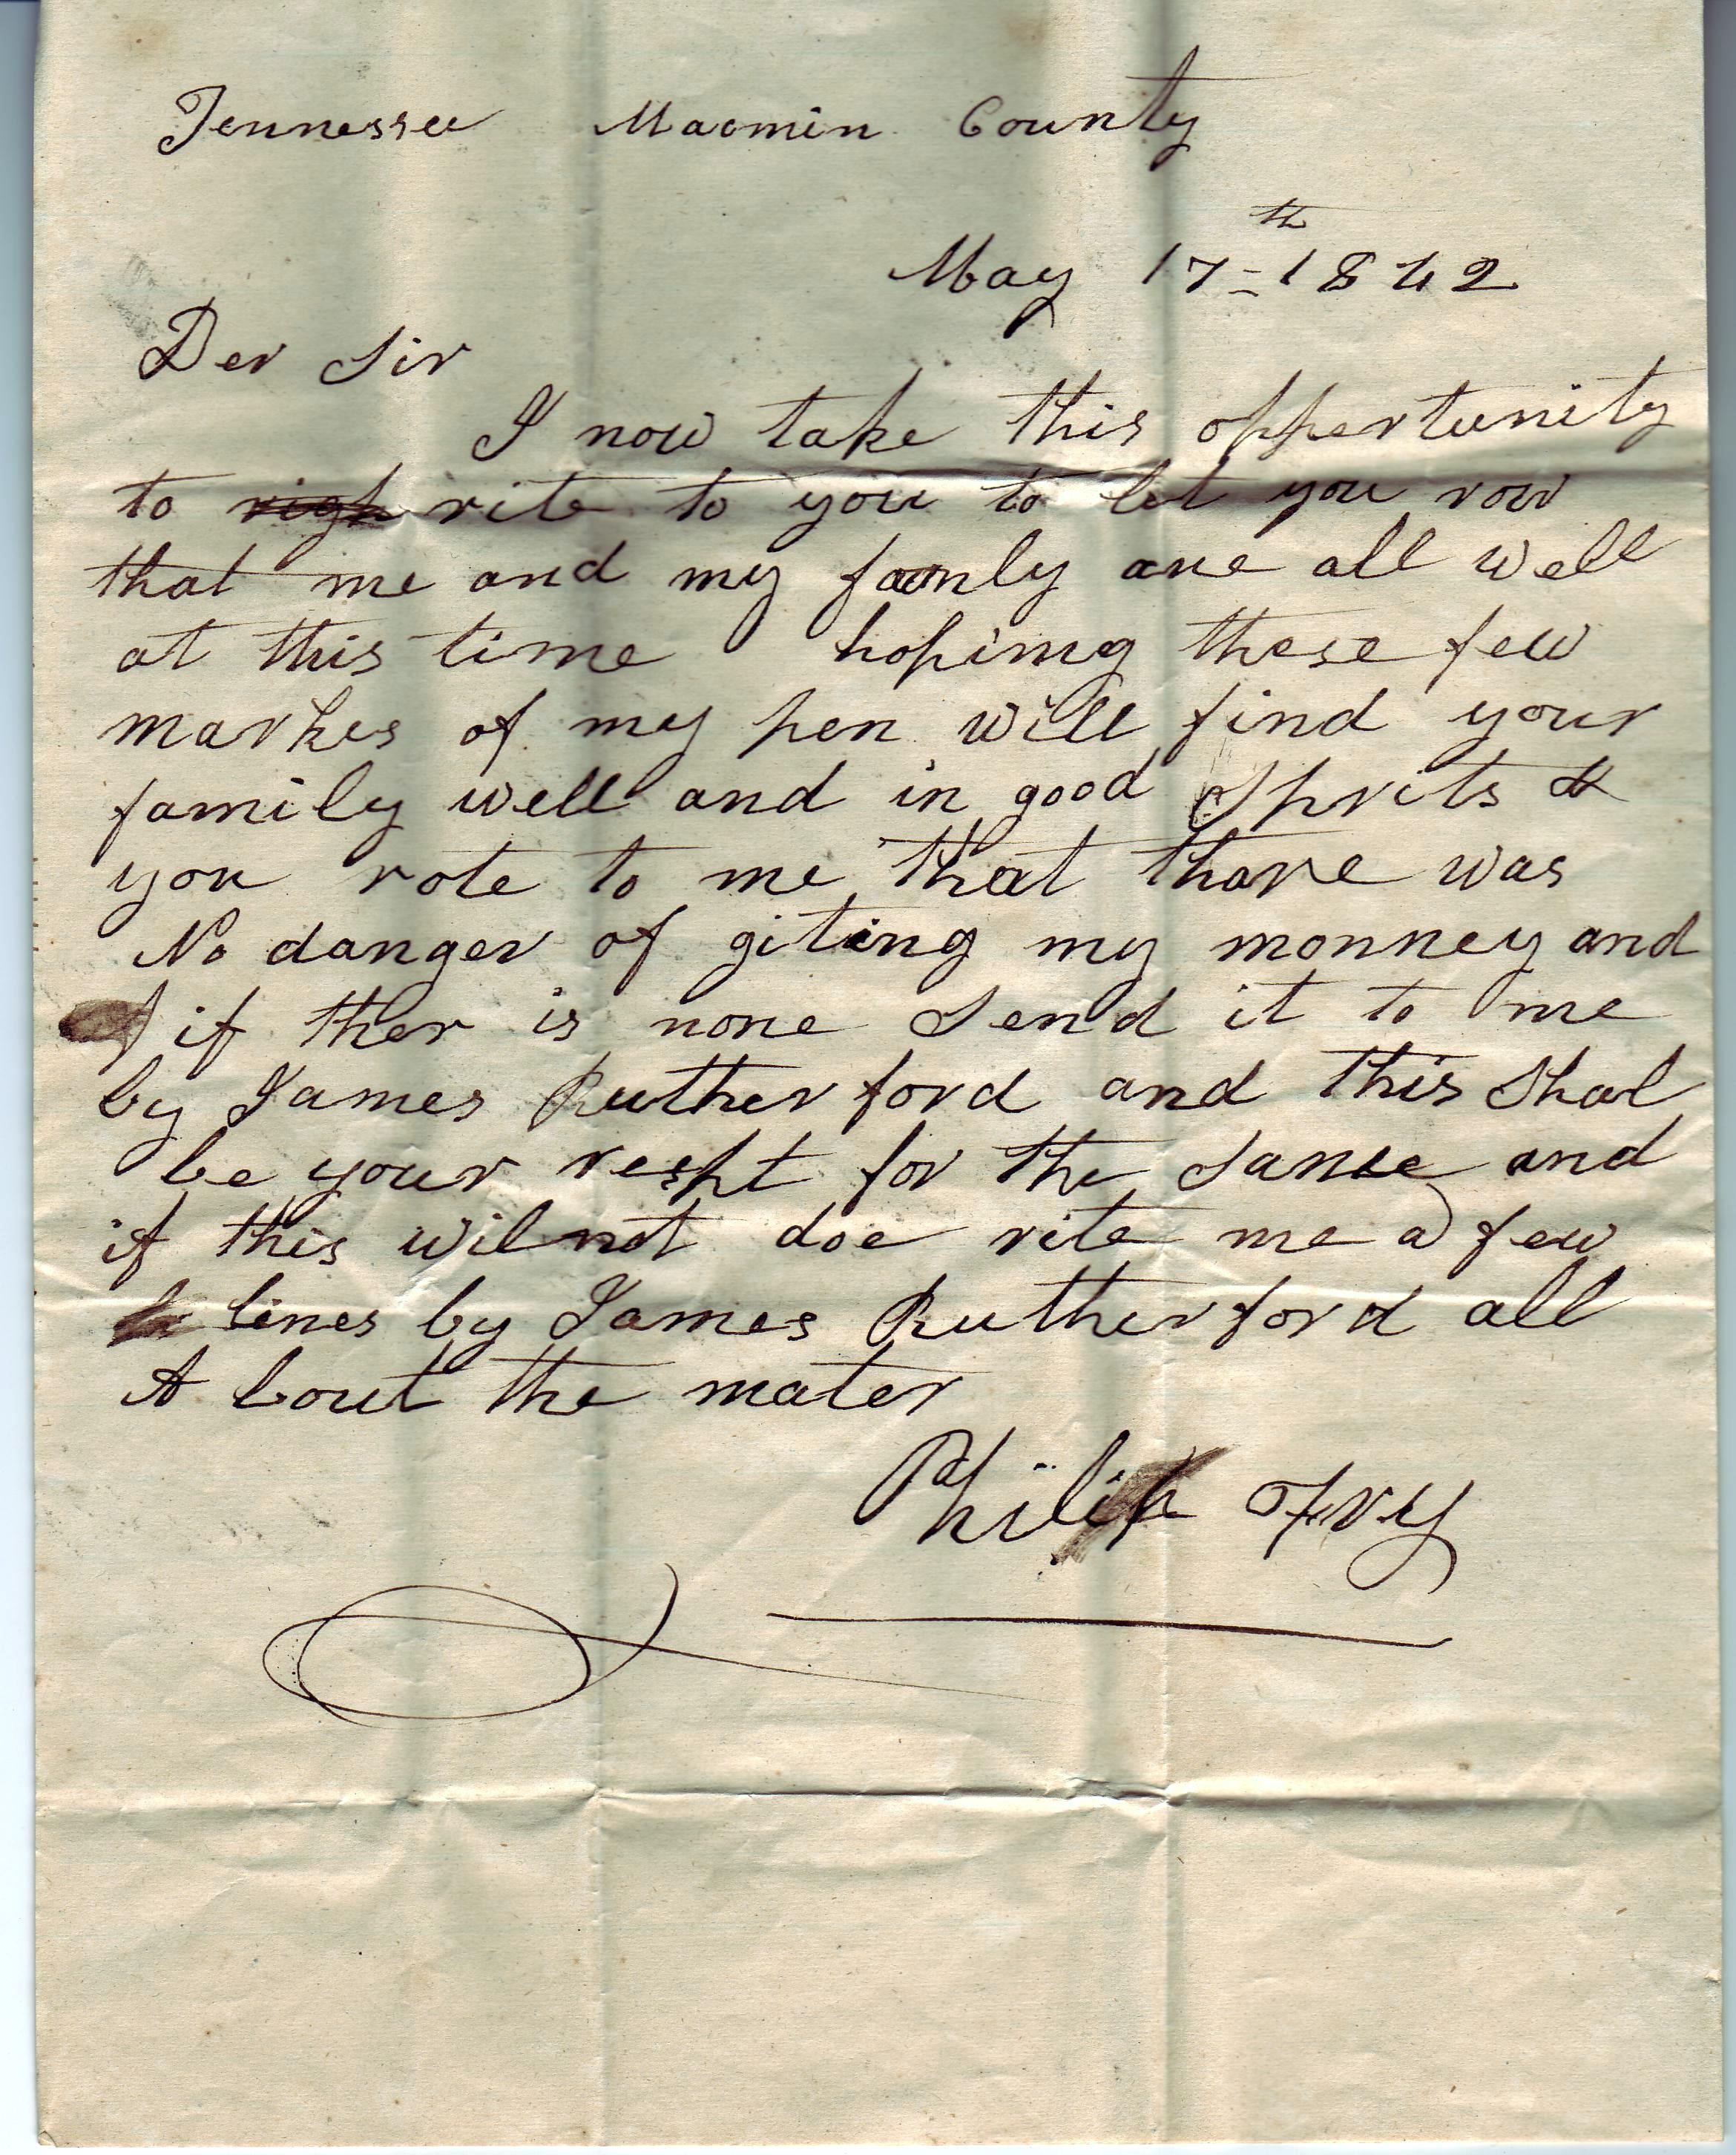 Tennessee Macmin County
May 17th - 1842
Der Sir
I now take this oppertunity
to righ rite to you to let you now
that me and my famly are all well
at this time hoping these few
markes of my pen will find your
family well and in good Sprits &
you rote to me that thare was
No danger of giting my monney and
if ther is none Send it to me
by James Rutherford and this Shal
be your respt for the Same and
if this wil not doe rite me a few
lines by James Rutherford all
A bout the mater
Philip